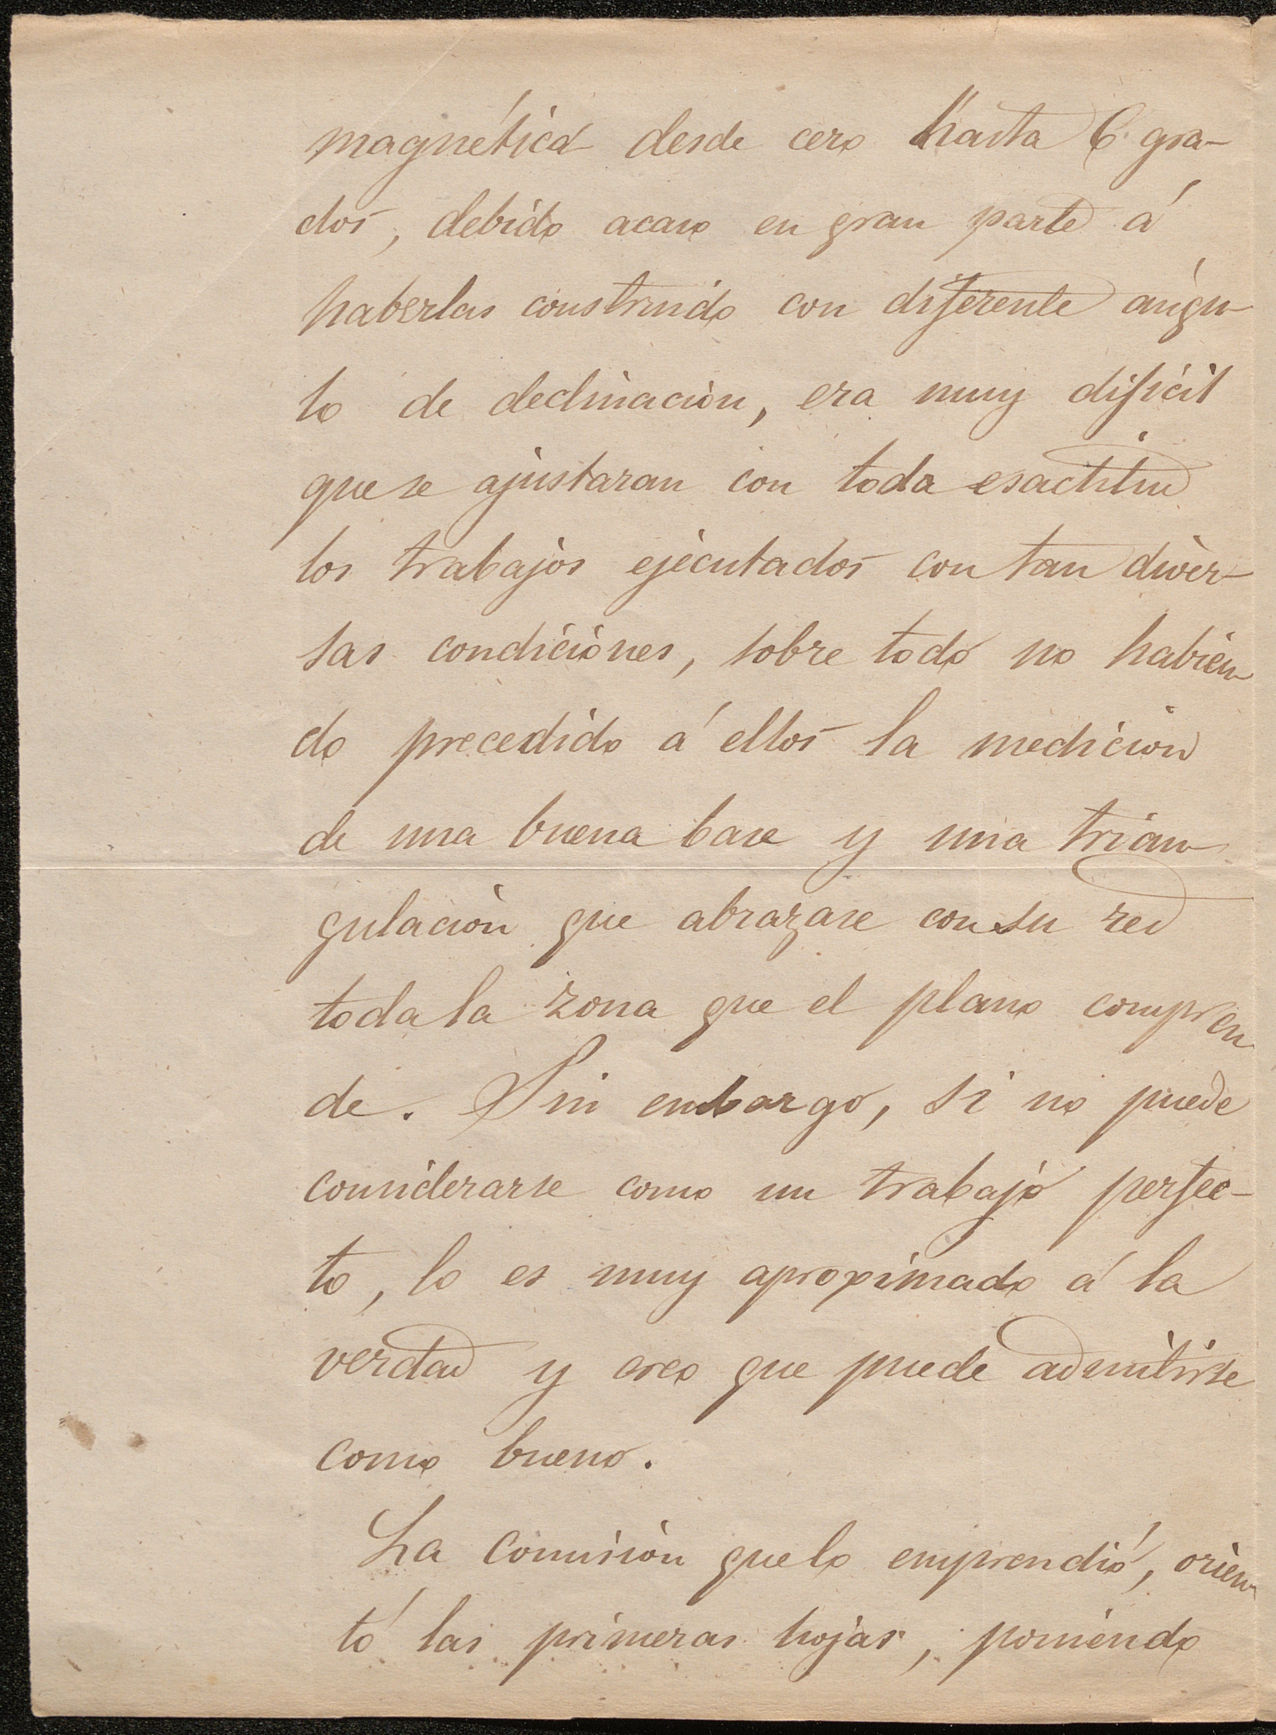 magnética desde cero hasta 6 gra-
dos, debido acaso en gran parte á
haberlas construido con diferente ángu-
lo de declinación, era muy dificil
que se ajustaran con toda esactitud
los trabajos ejecutados con tan diver-
sas condiciones, sobre todo no habien-
do precedido á ellos la medición
de una buena base y una trian-
gulación que abrazase con su red
toda la zona que el plano compren
de. Sin embargo, si no puede
considerarse como un trabajo perfec-
to, lo es muy aproximado á la
verdad y creo que puede admitirse
como bueno.
La Comisión que lo emprendió, orien-
tó las primeras hojas, poniendo